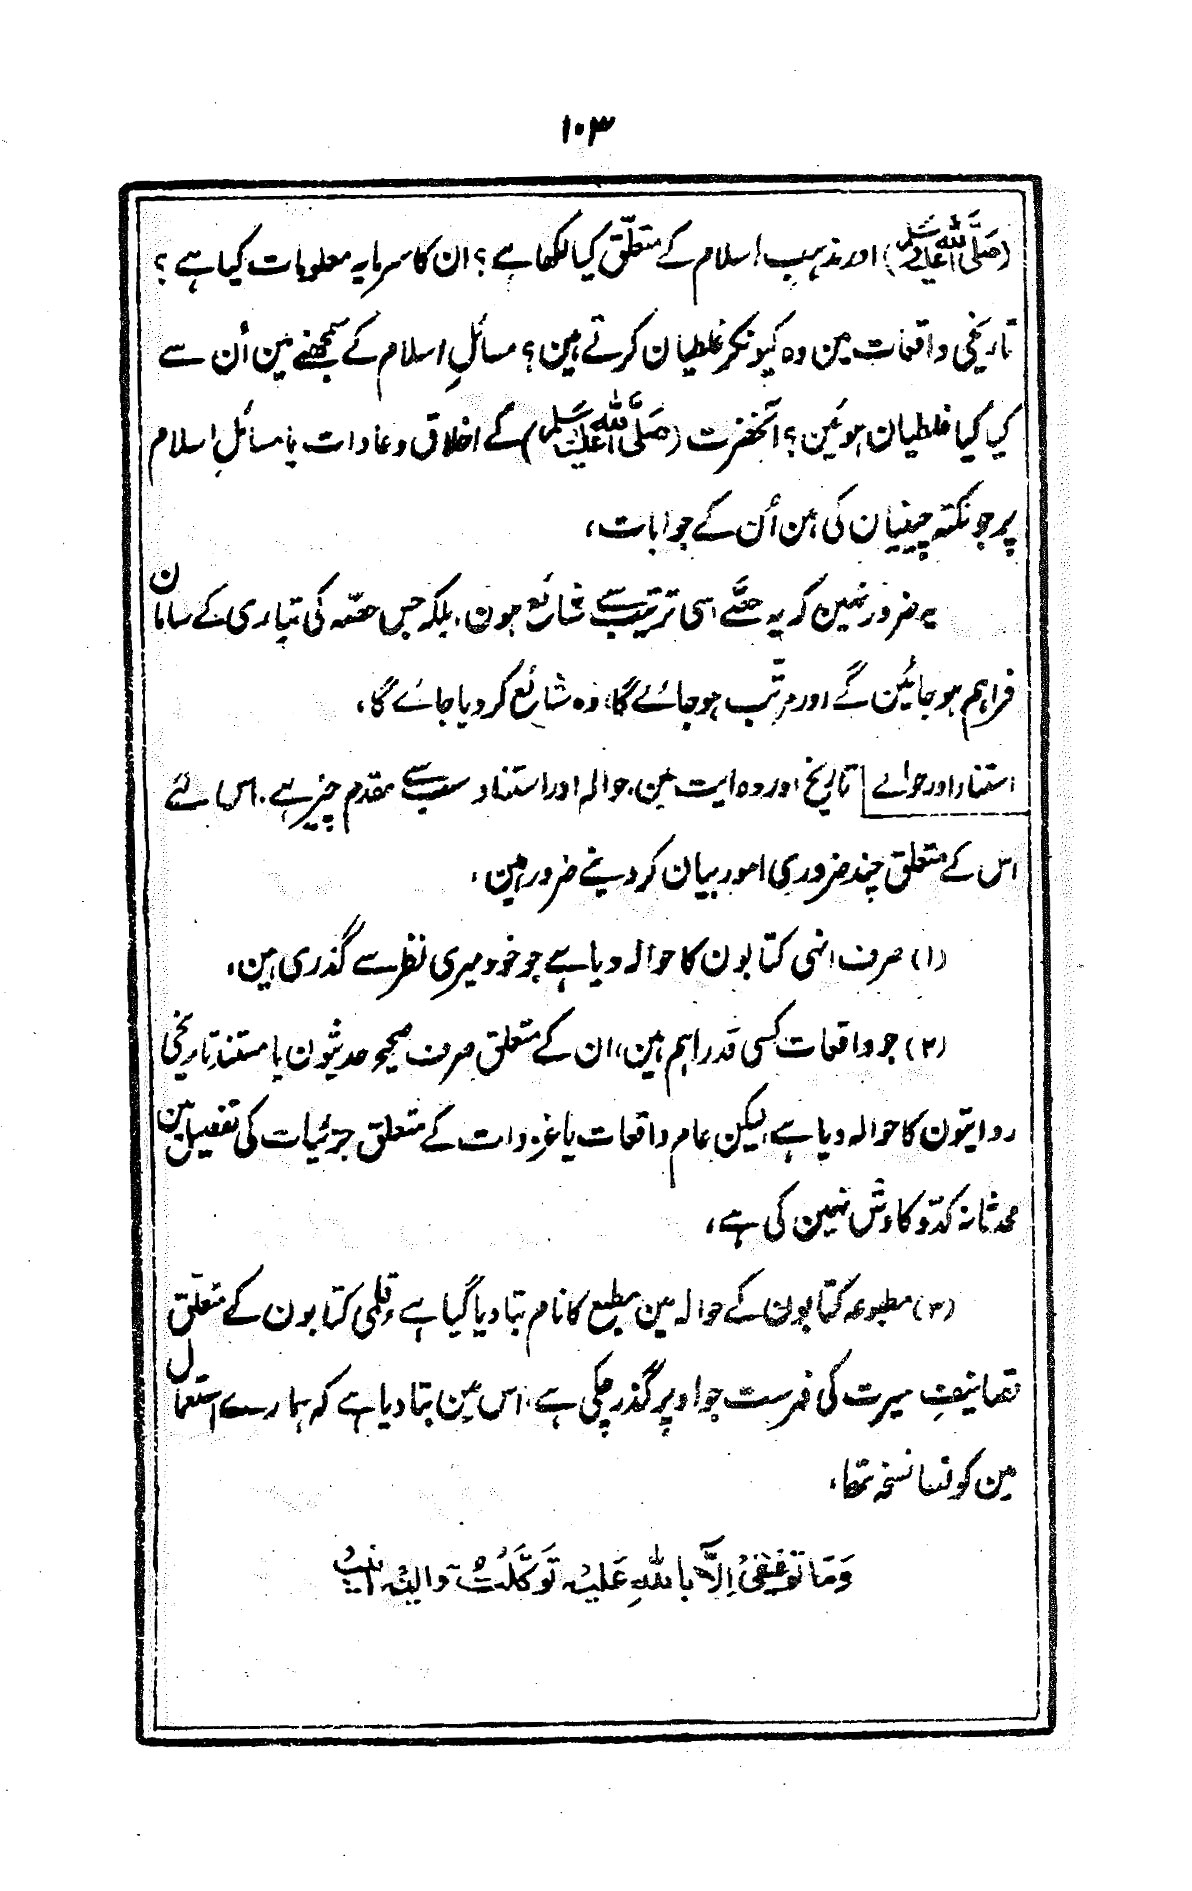 ۱۰۳
(صَلَّى اللهُ عَلَيْهِ وَسَلَّم) اور مذہب اسلام کے متعلّق کیا لکھا ہے؟ ان کا سرمایہ معلومات کیا ہے؟
تاریخی واقعات مین وہ کیونکر غلطیان کرتے ہین؟ مسائلِ اسلام کے سمجھنے مین اُن سے
کیا کیا غلطیان ہوئین؟ آنحضرت (صَلَّى اللهُ عَلَيْهِ وَسَلَّم) کے اخلاق و عادات یا مسائلِ اسلام
پر جو نکتہ چینیان کی ہین اُن کے جوابات،
یہ ضرور نہین کہ یہ حصّے اسی ترتیب سے شائع ہون، بلکہ جس حصّہ کی تیاری کے سامان
فراہم ہو جائین گے اور مرتّب ہو جائے گا، وہ شائع کر دیا جائے گا،
استناد اور حوالے تاریخ اور روایت مین، حوالہ اور استناد سب سے مقدم چیز ہے، اس لئے
اس کے متعلق چند ضروری امور بیان کر دینے ضرور ہین،
(۱) صرف انہی کتابون کا حوالہ دیا ہے جو خود میری نظر سے گذری ہین،
(۲) جو واقعات کسی قدر اہم ہین، ان کے متعلق صرف صحیح حدیثون یا مستند تاریخی
روایتون کا حوالہ دیا ہے، لیکن عام واقعات یا غزوات کے متعلق جزئیات کی تفصیل مین
محدثانہ کدّ و کاوش نہین کی ہے،
(۳) مطبوعہ کتابون کے حوالہ مین مطبع کا نام بتا دیا گیا ہے، قلمی کتابون کے متعلّق
تصانیفِ سیرت کی فہرست جو اوپر گذر چکی ہے، اس مین بتا دیا ہے کہ ہمارے استعمال
مین کونسا نسخہ تھا،
وَمَا تَوْفِيْقِيْ اِلَّا بِاللهِ عَلَيْهِ تَوَكَّلْتُ وَاِلَيْهِ اُنِيْبُ